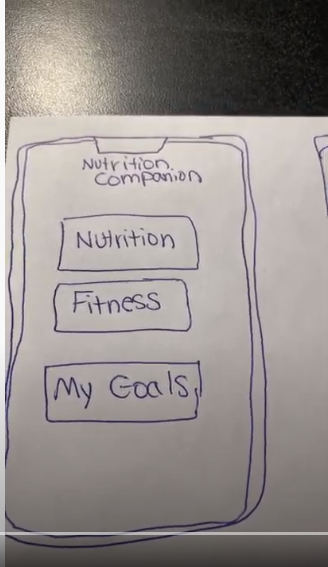 Nutrition
Companion
Nutrition
Fitness
My Goals